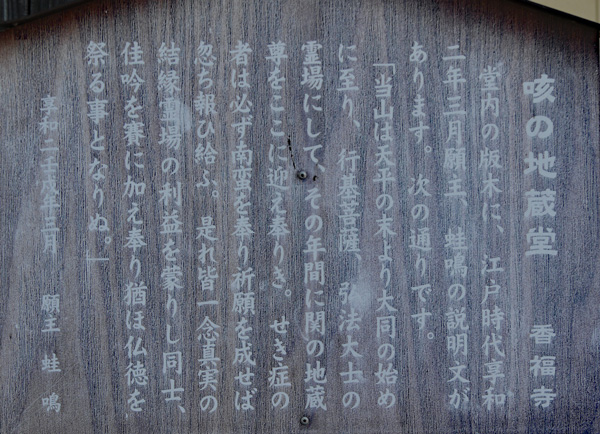 咳の地蔵堂　香福寺
堂内の版木に、江戸時代享和
二年三月願主、蛙鳴の説明文が
あります。次の通りです。
「当山は天平の末より大同の始め
に至り、行基菩薩、弘法大士の
霊場にして、その年間に関の地蔵
尊をここに迎え奉りき。せき症の
者は必ず南蛮を奉り祈願を成せば
忽ち報ひ給ふ。是れ皆一念真実の
結縁霊場の利益を蒙りし同士、
佳吟を賽に加え奉り猶ほ仏徳を
祭る事となりぬ。」
享和二壬戌年三月　願主　蛙鳴